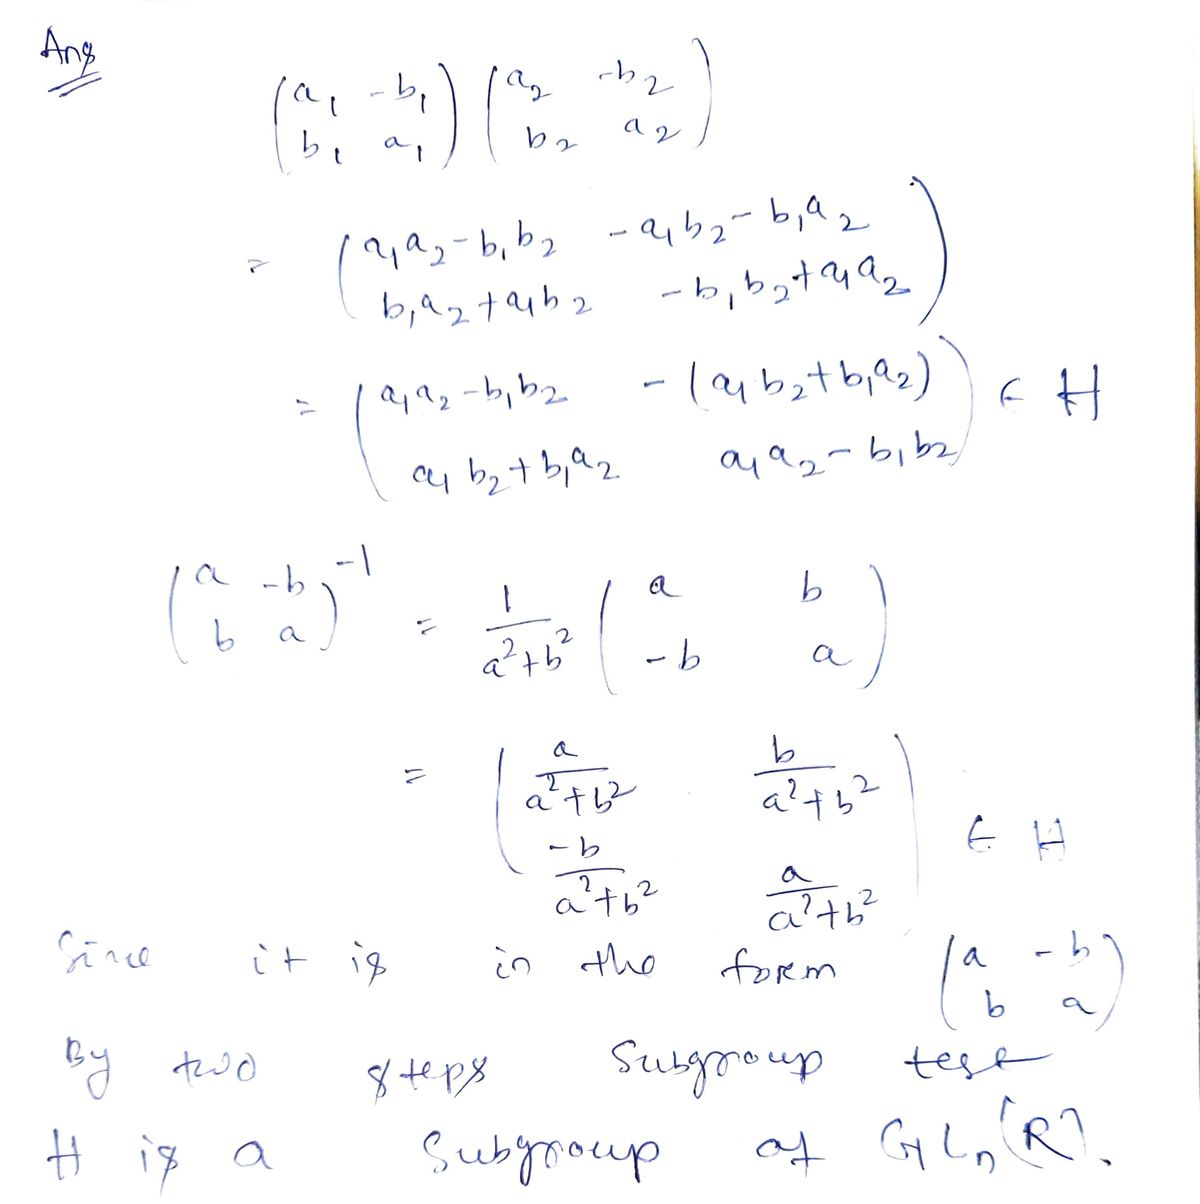 Ans
(a₁ -b₁) (a₂ -b₂)
(b₁ a₁) (b₂ a₂)
= (a₁a₂-b₁b₂ -a₁b₂-b₁a₂)
(b₁a₂+a₁b₂ -b₁b₂+a₁a₂)
= (a₁a₂-b₁b₂ -(a₁b₂+b₁a₂)) ∈ H
(a₁b₂+b₁a₂ a₁a₂-b₁b₂)
(a -b)⁻¹ = 1/(a²+b²) (a b)
(b a) (-b a)
= (a/(a²+b²) b/(a²+b²))
(-b/(a²+b²) a/(a²+b²)) ∈ H
Since it is in the form (a -b)
(b a)
By two steps Subgroup test
H is a Subgroup of GLₙ(R).